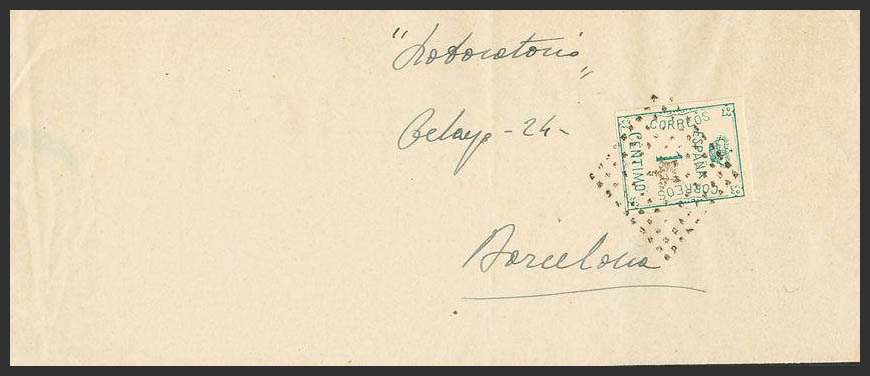 "Laboratorio"
Pelayo - 24 -
Barcelona
CORREOS
ESPAÑA
1
CENTIMO
CORREOS